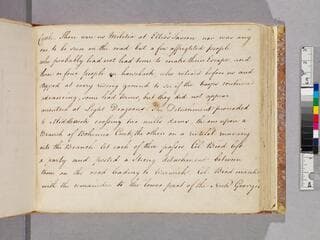 Creek. There was no Militia at Elk's Tavern, nor was any
one to be seen on the road but a few affrighted people
who probably had not had time to make their escape, and
three or four people on horseback who retired before us and
stopped at every rising ground to see if the troops continued
advancing, some had Arms, but they did not appear
accoutred as Light Dragoons. The Detachment proceeded
to Middletown crossing two mills dams, the one upon a
Branch of Bohemia Creek, the other on a rivulet running
into the Branch. At each of these passes Col. Wood left
a party and posted a strong detachment between
them on the road leading to Warwick. Col. Wood marched
with the remainder to the lower part of the Neck. Georges